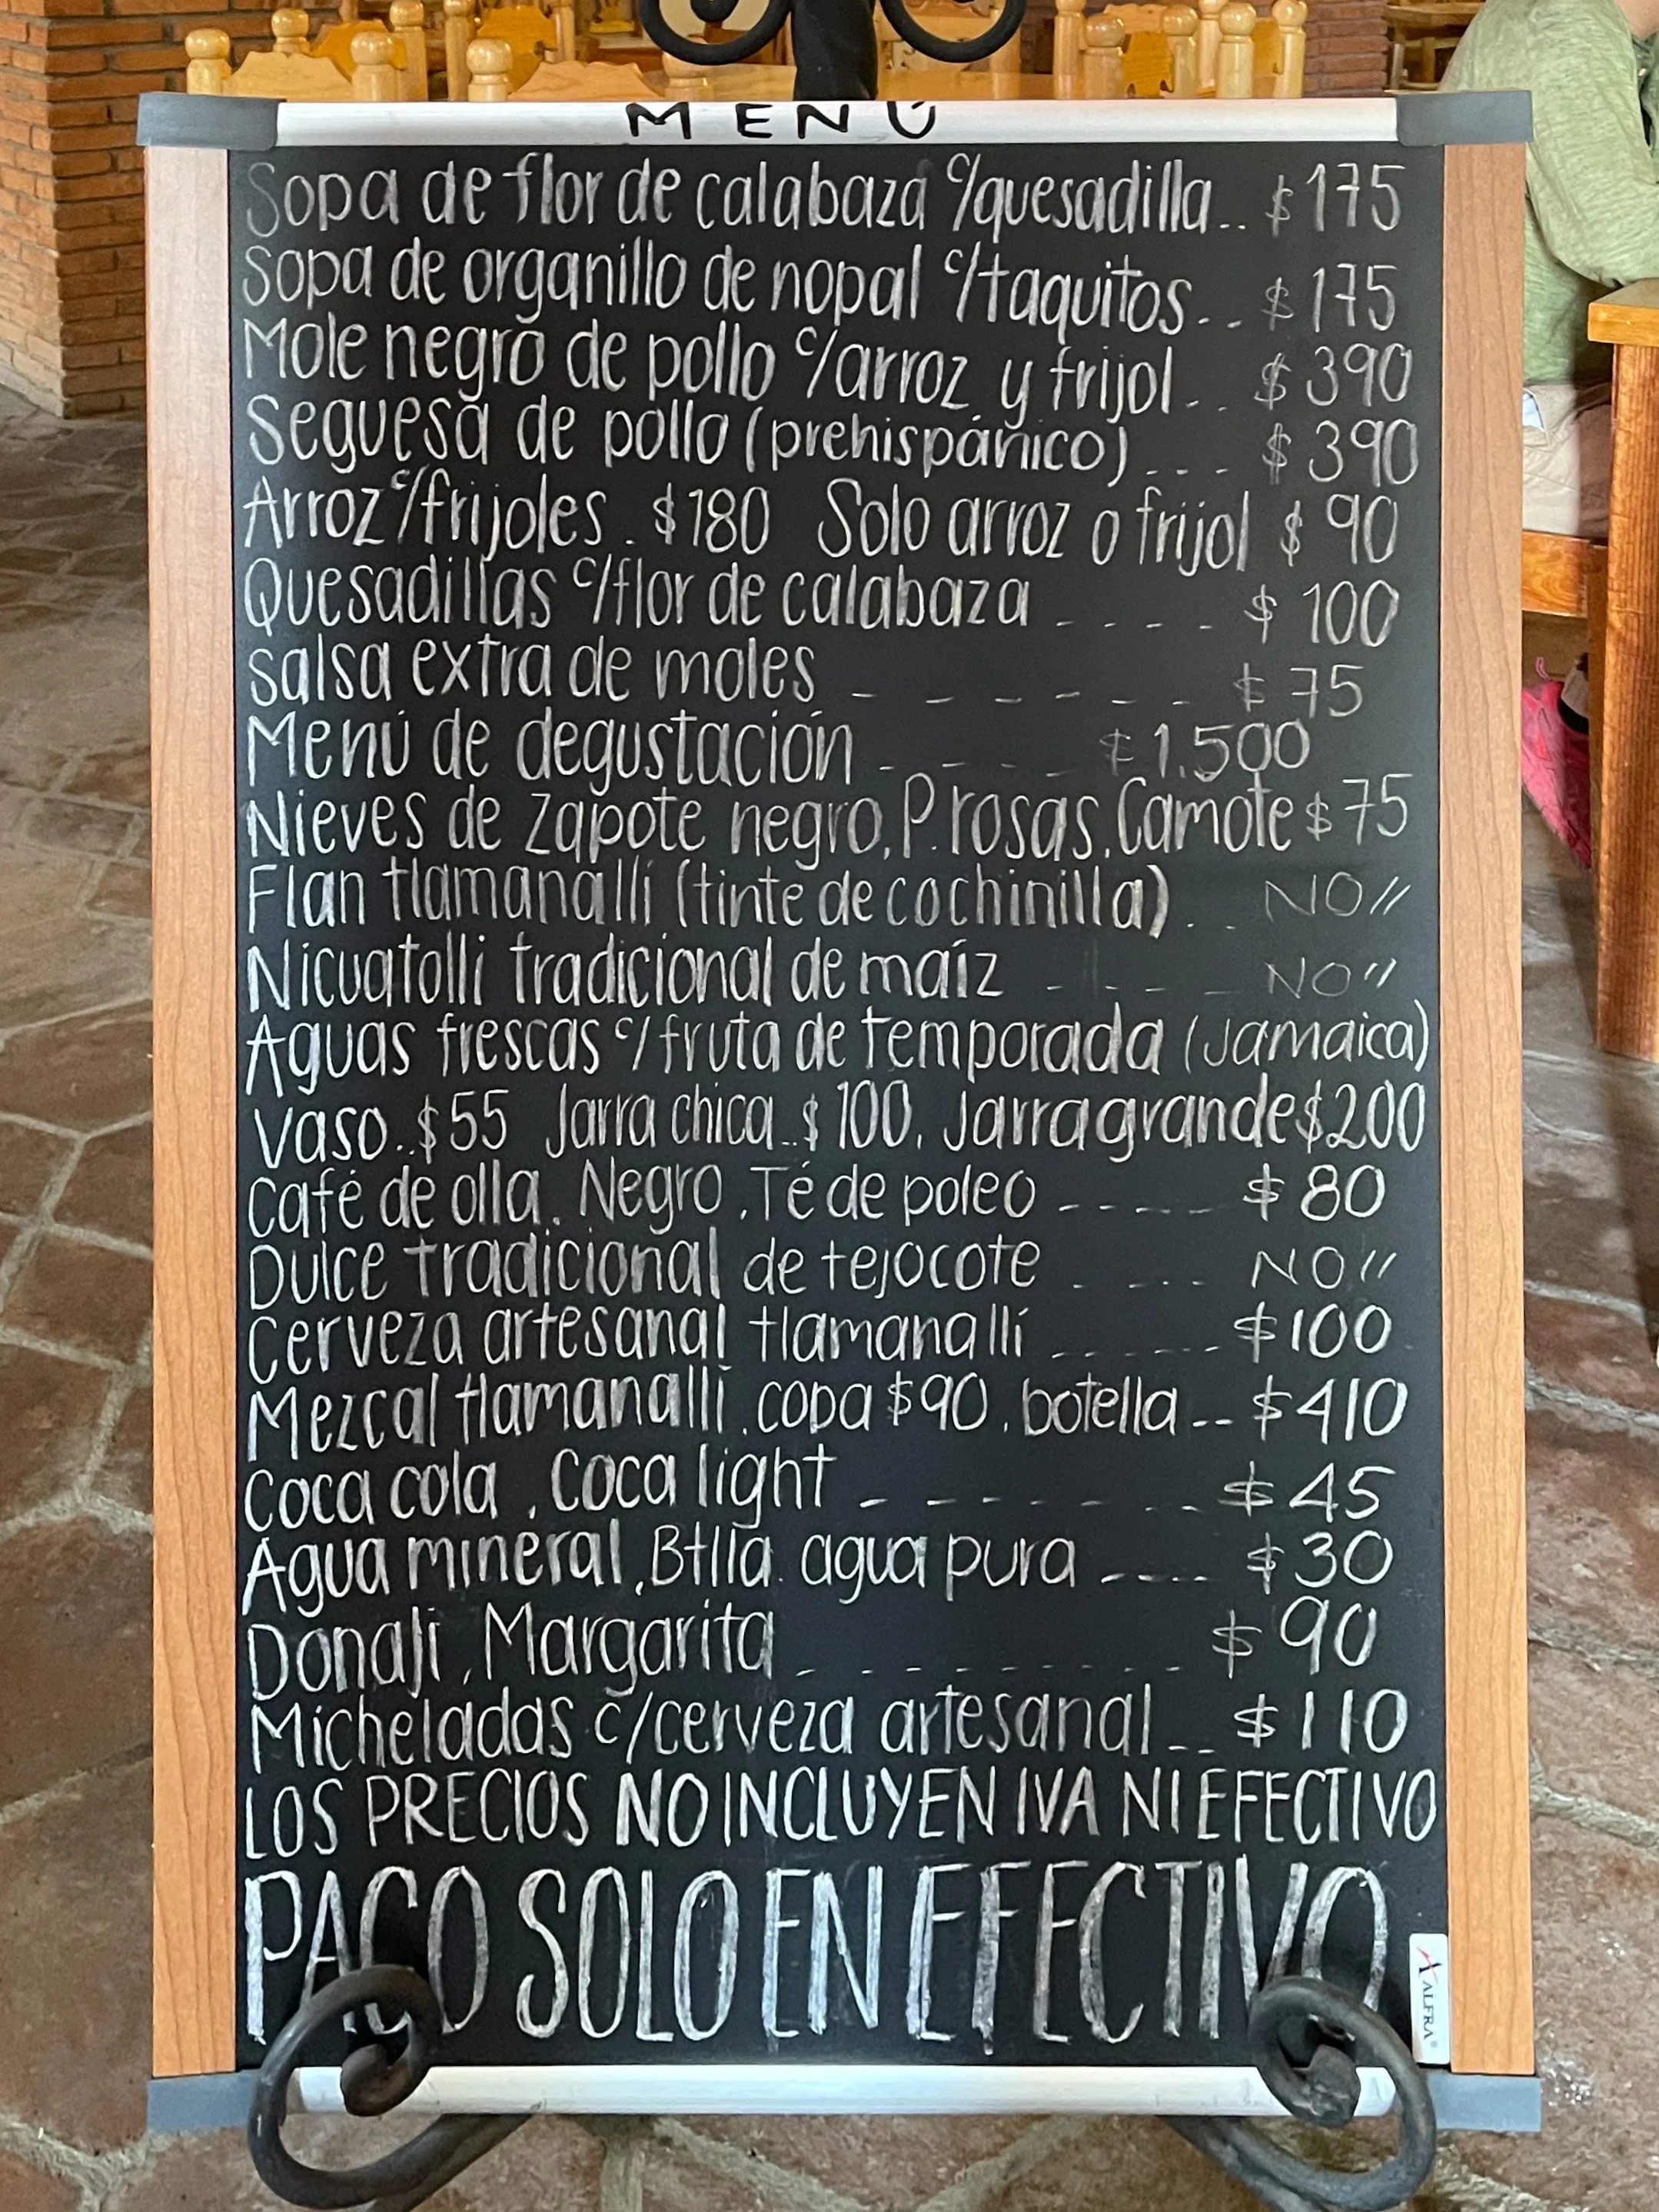 MENÚ
Sopa de flor de calabaza c/quesadilla.. $175
Sopa de organillo de nopal c/taquitos.. $175
Mole negro de pollo c/arroz y frijol.. $390
Seguesa de pollo (prehispánico)... $390
Arroz c/frijoles. $180 Solo arroz o frijol $90
Quesadillas c/flor de calabaza ---- $100
Salsa extra de moles ------ $75
Menú de degustación ---- $1.500
Nieves de zapote negro, P. rosas, Camote $75
Flan tlamanalli (tinte de cochinilla) .. NO//
Nicuatolli tradicional de maíz ---- NO//
Aguas frescas c/fruta de temporada (Jamaica)
Vaso..$55 Jarra chica..$100, Jarra grande $200
Café de olla. Negro, Té de poleo ---- $80
Dulce tradicional de tejocote .... NO//
Cerveza artesanal tlamanalli ------ $100
Mezcal tlamanalli, copa $90, botella -- $410
Coca cola, Coca light ------- $45
Agua mineral, Btlla. agua pura ---- $30
Donají, Margarita --------- $90
Micheladas c/cerveza artesanal -- $110
LOS PRECIOS NO INCLUYEN IVA NI EFECTIVO
PAGO SOLO EN EFECTIVO
ALFRA®